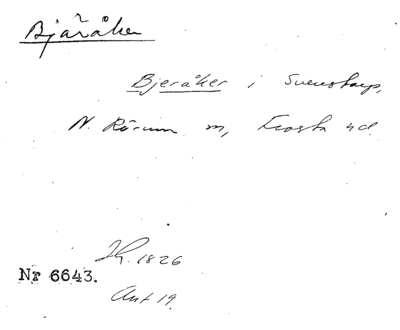 Bjäråker
Bjeråker i Svenstorp,
N. Rörum m, Frosta hd.
Jh. 1826
Nr 6643.
Ant 19.